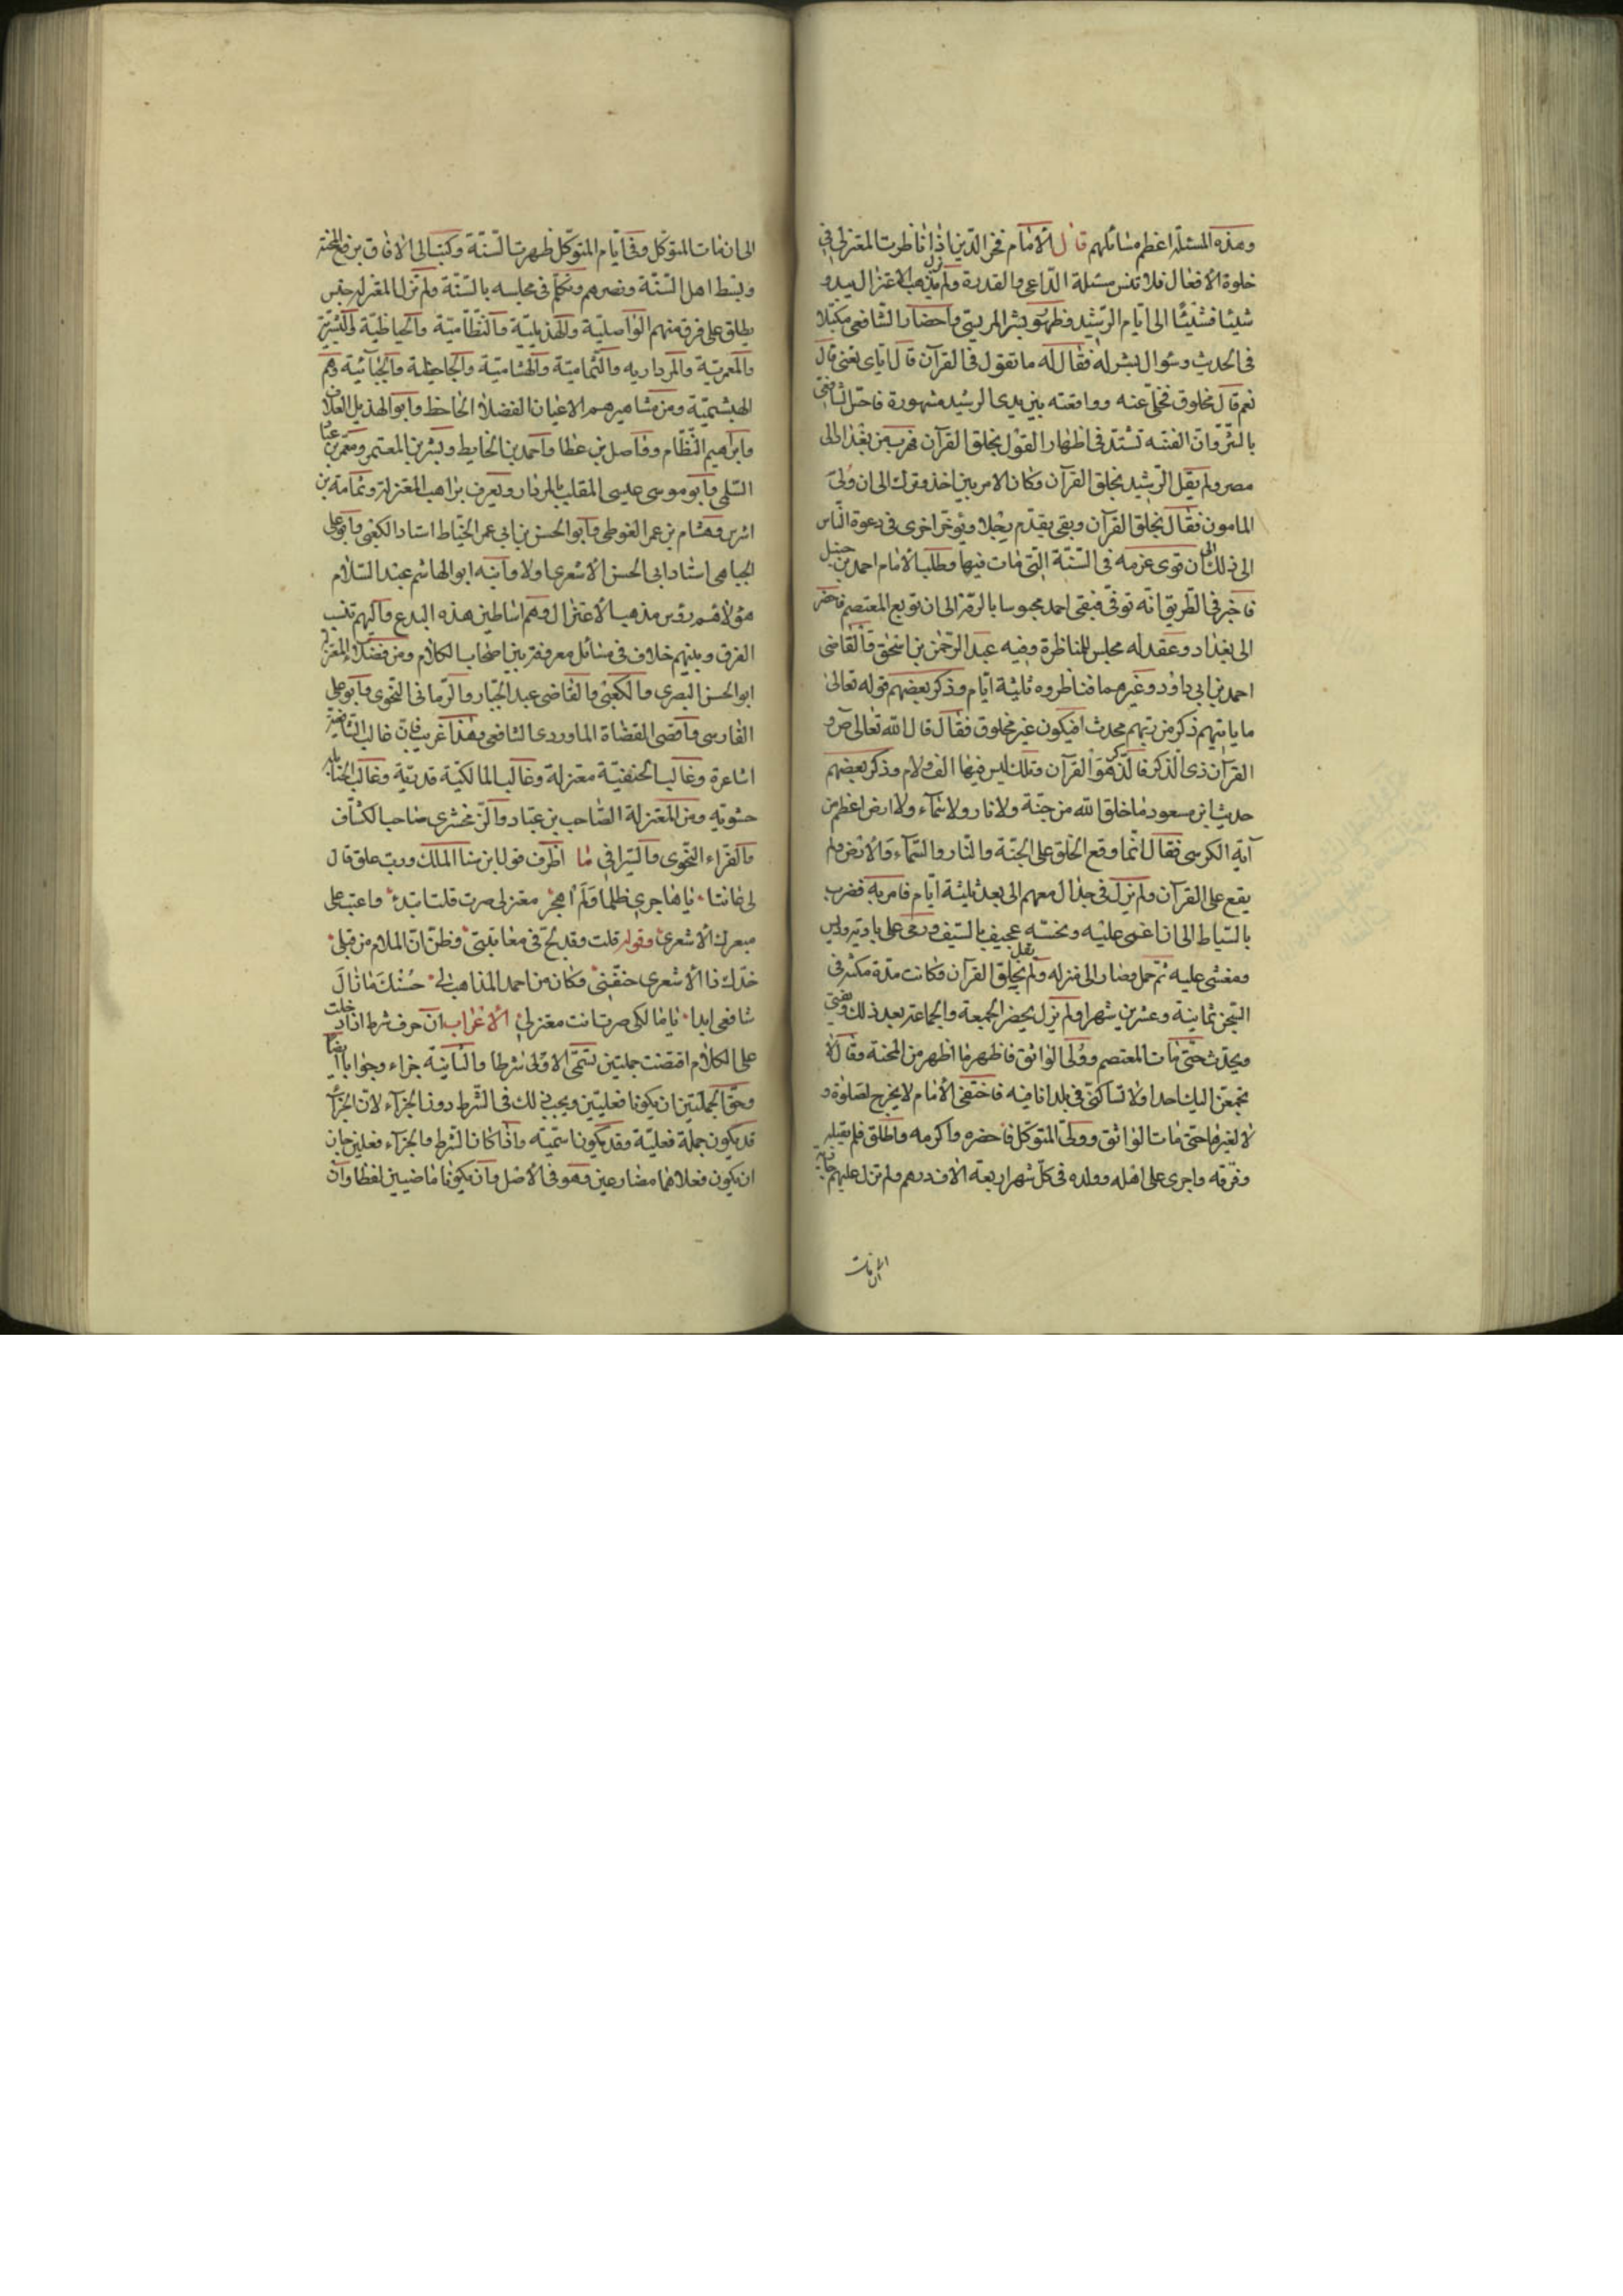 وهذه المسئلة اعظم مسائلهم قال الامام فخر الدين اذا ناظرت المعتزلي في
خلوة الافعال فلا تنس مسئلة الداعي والقدرة ولم يزل مذهب الاعتزال يبدو
شيئا فشيئا الى ايام الرشيد وظهور بشر المريسي واحضار الشافعي مكبلا
في الحديث وسؤال بشر له فقال له ما تقول في القرآن قال اياي تعني قال
نعم قال مخلوق فخلى عنه وواقعته بين يدي الرشيد مشهورة فاحس الشافعي
بالشر وان الفتنه تشتد في اظهار القول بخلق القرآن فهرب من بغداد الى
مصر ولم يقل الرشيد بخلق القرآن وكان الامر بين اخذ وترك الى ان ولي
المامون فقال بخلق القرآن وبقي يقدم رجلا ويوخر اخرى في دعوة الناس
الى ذلك الى ان قوى عزمه في السنة التي مات فيها وطلب الامام احمد بن حنبل
فاخبر في الطريق انه توفي فبقي احمد محبوسا بالرقة الى ان بويع المعتصم فاحضر
الى بغداد وعقد له مجلس للمناظرة وفيه عبد الرحمن بن اسحق والقاضي
احمد بن ابي داود وغيرهما فناظروه ثلثة ايام وذكر بعضهم قوله تعالى
ما ياتيهم ذكر من ربهم محدث افيكون غير مخلوق فقال قال الله تعالى ص و
القرآن ذى الذكر فالذكر هو القرآن وتلك ليس فيها الف ولام وذكر بعضهم
حديث ابن مسعود ما خلق الله من جنة ولا نار ولا سماء ولا ارض اعظم من
آية الكرسي فقال انما وقع الخلق على الجنة والنار والسماء والارض ولم
يقع على القرآن ولم يزل في جدال معهم الى بعد ثلثة ايام فامر به فضرب
بالسياط الى ان اغمى عليه ونخسه عجيف بالسيف ورمى على باريه وديس
ومغشى عليه ثم حمل وصار الى منزله ولم يقل بخلق القرآن وكانت مدة مكثه في
السجن ثمانية وعشرين شهرا ولم يزل يحضر الجمعة والجماعة بعد ذلك ويفتي
ويحدث حتى مات المعتصم وولى الواثق فاظهر ما اظهر من المحنة وقال لا
تجمعن اليك احدا ولا تساكني في بلد انا فيه فاختفى الامام لا يخرج لصلوة و
لا لغيرها حتى مات الواثق وولى المتوكل فاحضره واكرمه واطلق فلم يقبله
وفرقه واجرى على اهله وولده في كل شهر اربعة الاف درهم ولم تزل عليهم جارية
الى ان مات
الى ان مات المتوكل وفي ايام المتوكل ظهرت السنة وكتب الى الافاق برفع المحنة
وبسط اهل السنة ونصرهم وتكلم في مجلسه بالسنة ولم تزل المعتزلة جنس
يطلق على فرق منهم الواصلية والهذيلية والنظامية والحايطية والبشرية
والمعمرية والمردارية والثمامية والهشامية والجاحظية والجبائية وهم
البهشمية ومن مشاهيرهم الاعيان الفضلا الجاحظ وابو الهذيل العلاف
وابراهيم النظام وواصل بن عطا واحمد بن الحايط وبشر بن المعتمر ومعمر بن عباد
السلمي وابو موسى عيسى الملقب بالمردار ويعرف براهب المعتزلة وثمامة بن
اشرس وهشام بن عمر الفوطي وابو الحسن بن ابي عمر الخياط استاد الكعبي وابو علي
الجبائي استاد ابي الحسن الاشعري اولا وابنه ابو الهاشم عبد السلام
هؤلاء هم رؤس مذهب الاعتزال وهم اساطين هذه البدع واليهم تنسب
الفرق وبينهم خلاف في مسائل معروفة بين اصحاب الكلام ومن فضلاء المعتزلة
ابو الحسن البصري والكعبي والقاضي عبد الجبار والرماني النحوي وابو علي
الفارسي واقضى القضاة الماوردي الشافعي وهذا غريب فان غالب الشافعية
اشاعرة وغالب الحنفية معتزلة وغالب المالكية قدرية وغالب الحنابلة
حشوية ومن المعتزلة الصاحب بن عباد والزمخشري صاحب الكشاف
والفراء النحوي والسيرافي ما اظرف قول ابن سنا الملك ورب علق قال
لي عاتبا يا هاجري ظلما ولم اهجر معتزلي صرت قلت اتئد واعتب على
مبعرك الاشعري وقوله قلت وقد لج في معاتبتي وظن ان الملام من قبلي
خدك ذا الاشعري حنفني وكان من احمد المذاهب لي حسنك ما زال
شافعي ابدا يا مالكي صرت انت معتزلي الاعراب ان حرف شرط اذا دخلت
على الكلام اقتضت جملتين تسمى الاولى شرطا والثانية جزاء وجوابا ايضا
وحق الجملتين ان يكونا فعليتين ويجب ذلك في الشرط دون الجزاء لان الجزاء
قد يكون جملة فعلية وقد يكون اسمية واذا كان الشرط والجزاء فعلين جاز
ان يكون فعلاهما مضارعين وهو في الاصل وان يكونا ماضيين لفظا وان